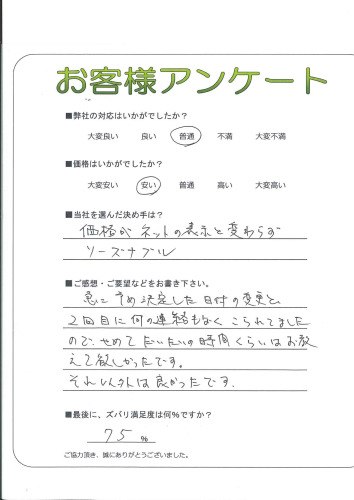 お客様アンケート
■弊社の対応はいかがでしたか？
大変良い 良い 普通 不満 大変不満
■価格はいかがでしたか？
大変安い 安い 普通 高い 大変高い
■当社を選んだ決め手は？
価格が ネットの表示と変わらず
リーズナブル
■ご感想・ご要望などをお書き下さい。
急に 予め決定した日付の変更と、
2回目に何の連絡もなく こられてました
ので、せめて だいたいの時間くらいはお教
えて欲しかったです。
それ以外は良かったです。
■最後に、ズバリ満足度は何%ですか？
75 %
ご協力頂き、誠にありがとうございました。